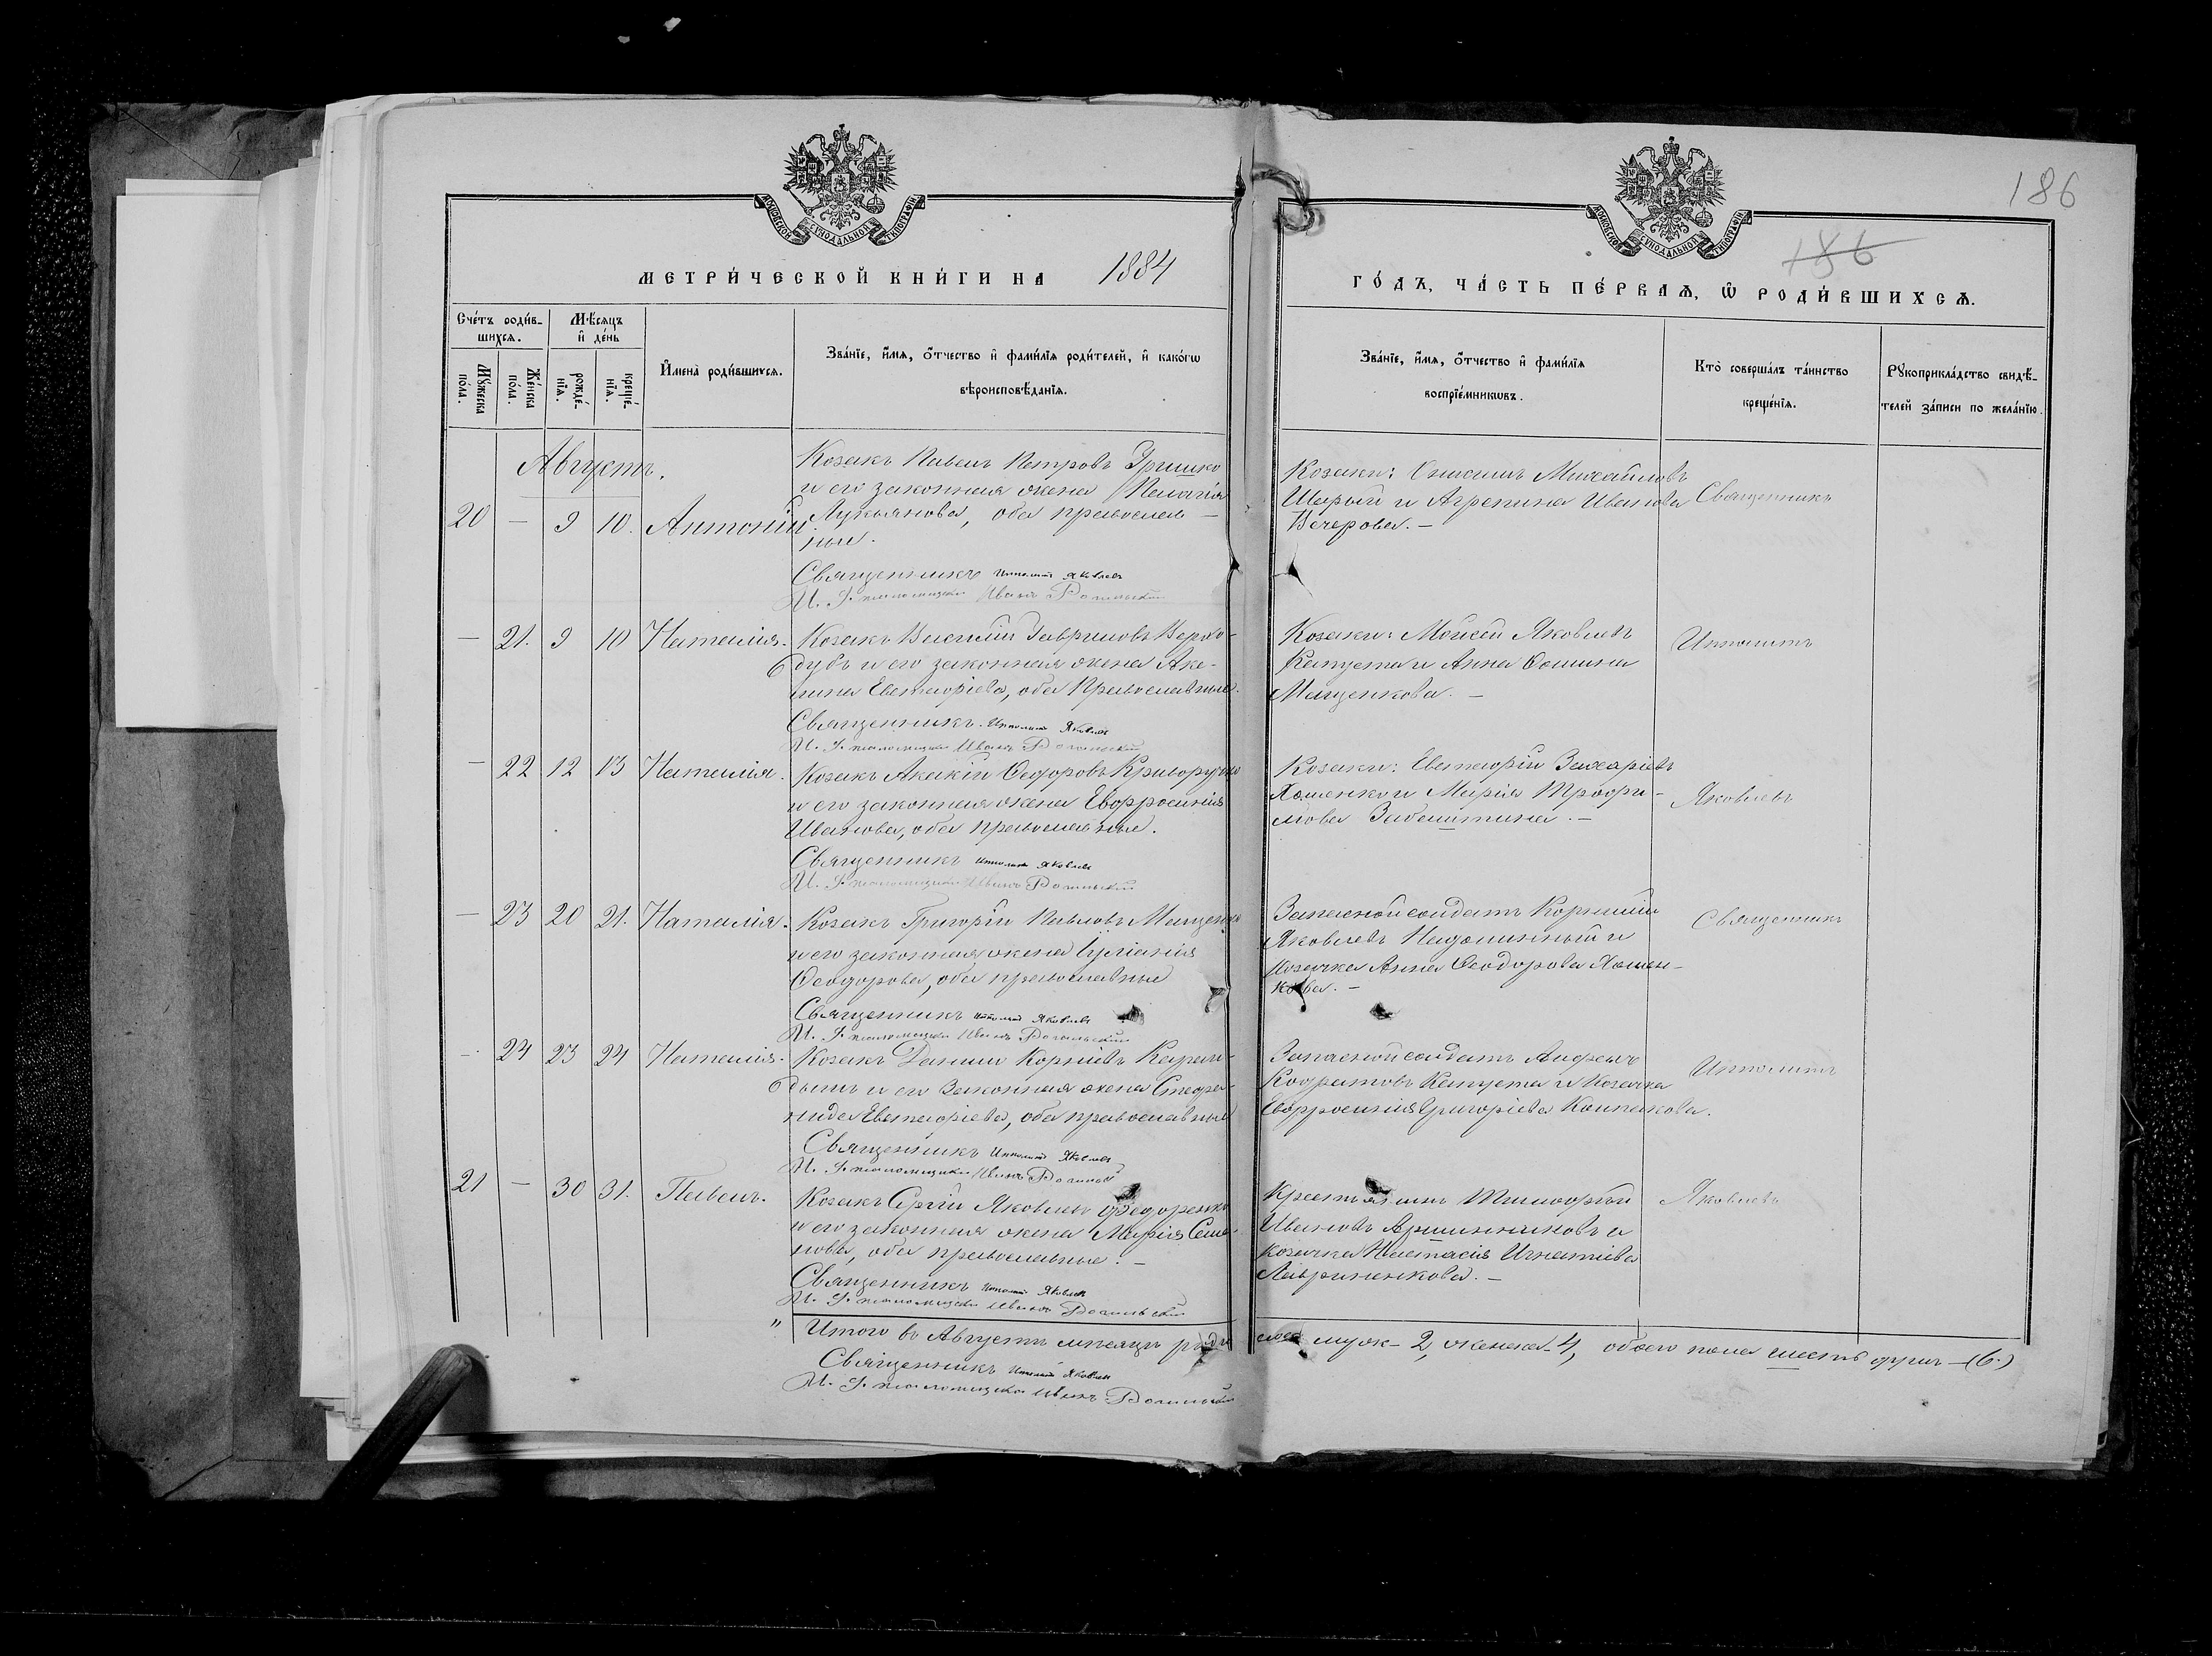 186
186
МОСКОВСКОЙ СУНОДАЛЬНОЙ ТИПОГРАФІИ
МОСКОВСКОЙ СУНОДАЛЬНОЙ ТИПОГРАФІИ
МЕТРИ́ЧЕСКОЙ КНИ́ГИ НА 1884
ГО́ДЪ, ЧА́СТЬ ПЕ́РВАѦ, Ѡ РОДИ́ВШИХСѦ.
Сче́тъ роди́в-
шихсѧ.
Мꙋ́жеска по́ла.
Же́нска по́ла.
Мѣ́сѧцъ и де́нь
рожде́-
нїѧ.
креще́-
нїѧ.
Имена̀ роди́вшихсѧ.
Зва́нїе, и́мѧ, ѻ́тчество и фами́лїѧ роди́телей, и како́гѡ
вѣроисповѣ́данїѧ.
Зва́нїе, и́мѧ, ѻ́тчество и фами́лїѧ
воспрїе́мникѡвъ.
Кто̀ соверша́лъ та́инство
креще́нїѧ.
Рꙋкоприкла́дство свидѣ́-
телей за́писи по жела́нїю.
Августъ.
20 — 9 10. Антоній
Козакъ Павелъ Петровъ Гришко
и его законная жена Пелагія
Лукьянова, оба православ-
ные.
Священникъ Ипполитъ Яковлевъ
И. д. псаломщика Иванъ
Козаки: Онисимъ Михайловъ
Шарый и Агрепина Иванова
Вечерова. —
Священникъ
— 21. 9 10 Наталія.
Козакъ Василій Гавриловъ
дубъ и его законная жена Аке-
лина Евстафіева, оба Православные.
Священникъ Ипполитъ Яковлевъ
И. д. псаломщика Иванъ
Козаки: Моисей Яковлевъ
Капуста и Анна Ѳомина
Мищенкова. —
Ипполитъ
— 22 12 13 Наталія.
Козакъ Акакій Ѳедоровъ Криворучко
и его законная жена Евфросинія
Иванова, оба православные.
Священникъ Ипполитъ Яковлевъ
И. д. псаломщика Иванъ
Козаки: Евстафій Захаріевъ
Хоменко и Марія Трофи-
мова Забаштина. —
Яковлевъ
— 23 20 21. Наталія.
Козакъ Григорій Павловъ Мищенко
и его законная жена Іуліанія
Ѳеодорова, оба православные
Священникъ Ипполитъ Яковлевъ
И. д. псаломщика Иванъ
Запасной солдатъ Корнилій
Яковлевъ и
козачка Анна Ѳеодорова Хомен-
кова. —
Священникъ
— 24 23 24 Наталія.
Козакъ Даніилъ Корніевъ
и его Законная жена Стефа-
нида Евстафіева, оба православные
Священникъ Ипполитъ Яковлевъ
И. д. псаломщика Иванъ
Запасной солдатъ
Кодратовъ Капуста и Козачка
Евфросинія Григоріева Колпакова.
Ипполитъ
21 — 30 31. Павелъ.
Козакъ Сергій Яковлевъ Федоренко
и его законная жена Марія Семе-
нова, оба православные. —
Священникъ Ипполитъ Яковлевъ
И. д. псаломщика Иванъ
Крестьянинъ Тимофей
Ивановъ и
козачка Настасія Игнатіева
Лавриненкова. —
Яковлевъ
" Итого въ Августѣ мѣсяцѣ роди
лось муж- 2, женска- 4, обоего пола шесть душъ — (6.)
Священникъ Ипполитъ Яковлевъ
И. д. псаломщика Иванъ